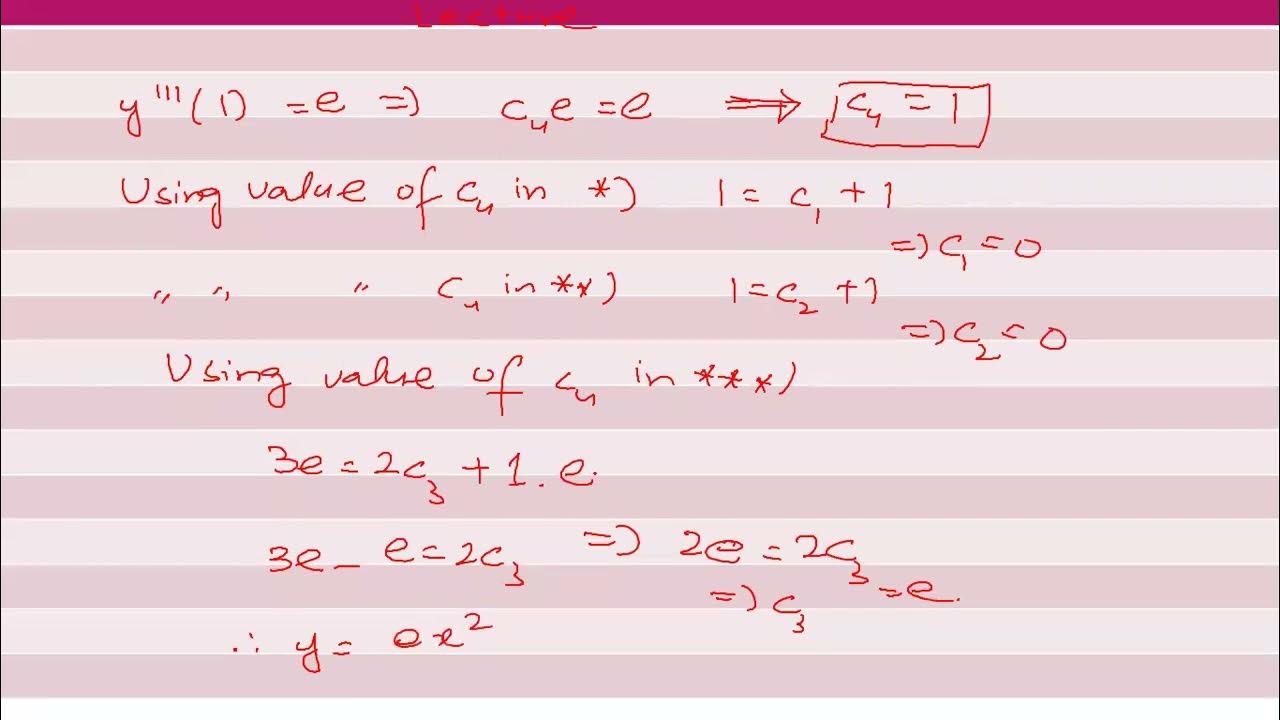 Lecture
y'''(1) = e => c₄e = e ⟹ c₄ = 1
Using value of c₄ in *) 1 = c₁ + 1
=> c₁ = 0
,, ,, ,, c₄ in **) 1 = c₂ + 1
=> c₂ = 0
Using value of c₄ in ***)
3e = 2c₃ + 1.e.
3e - e = 2c₃ => 2e = 2c₃
=> c₃ = e.
∴ y = ex²